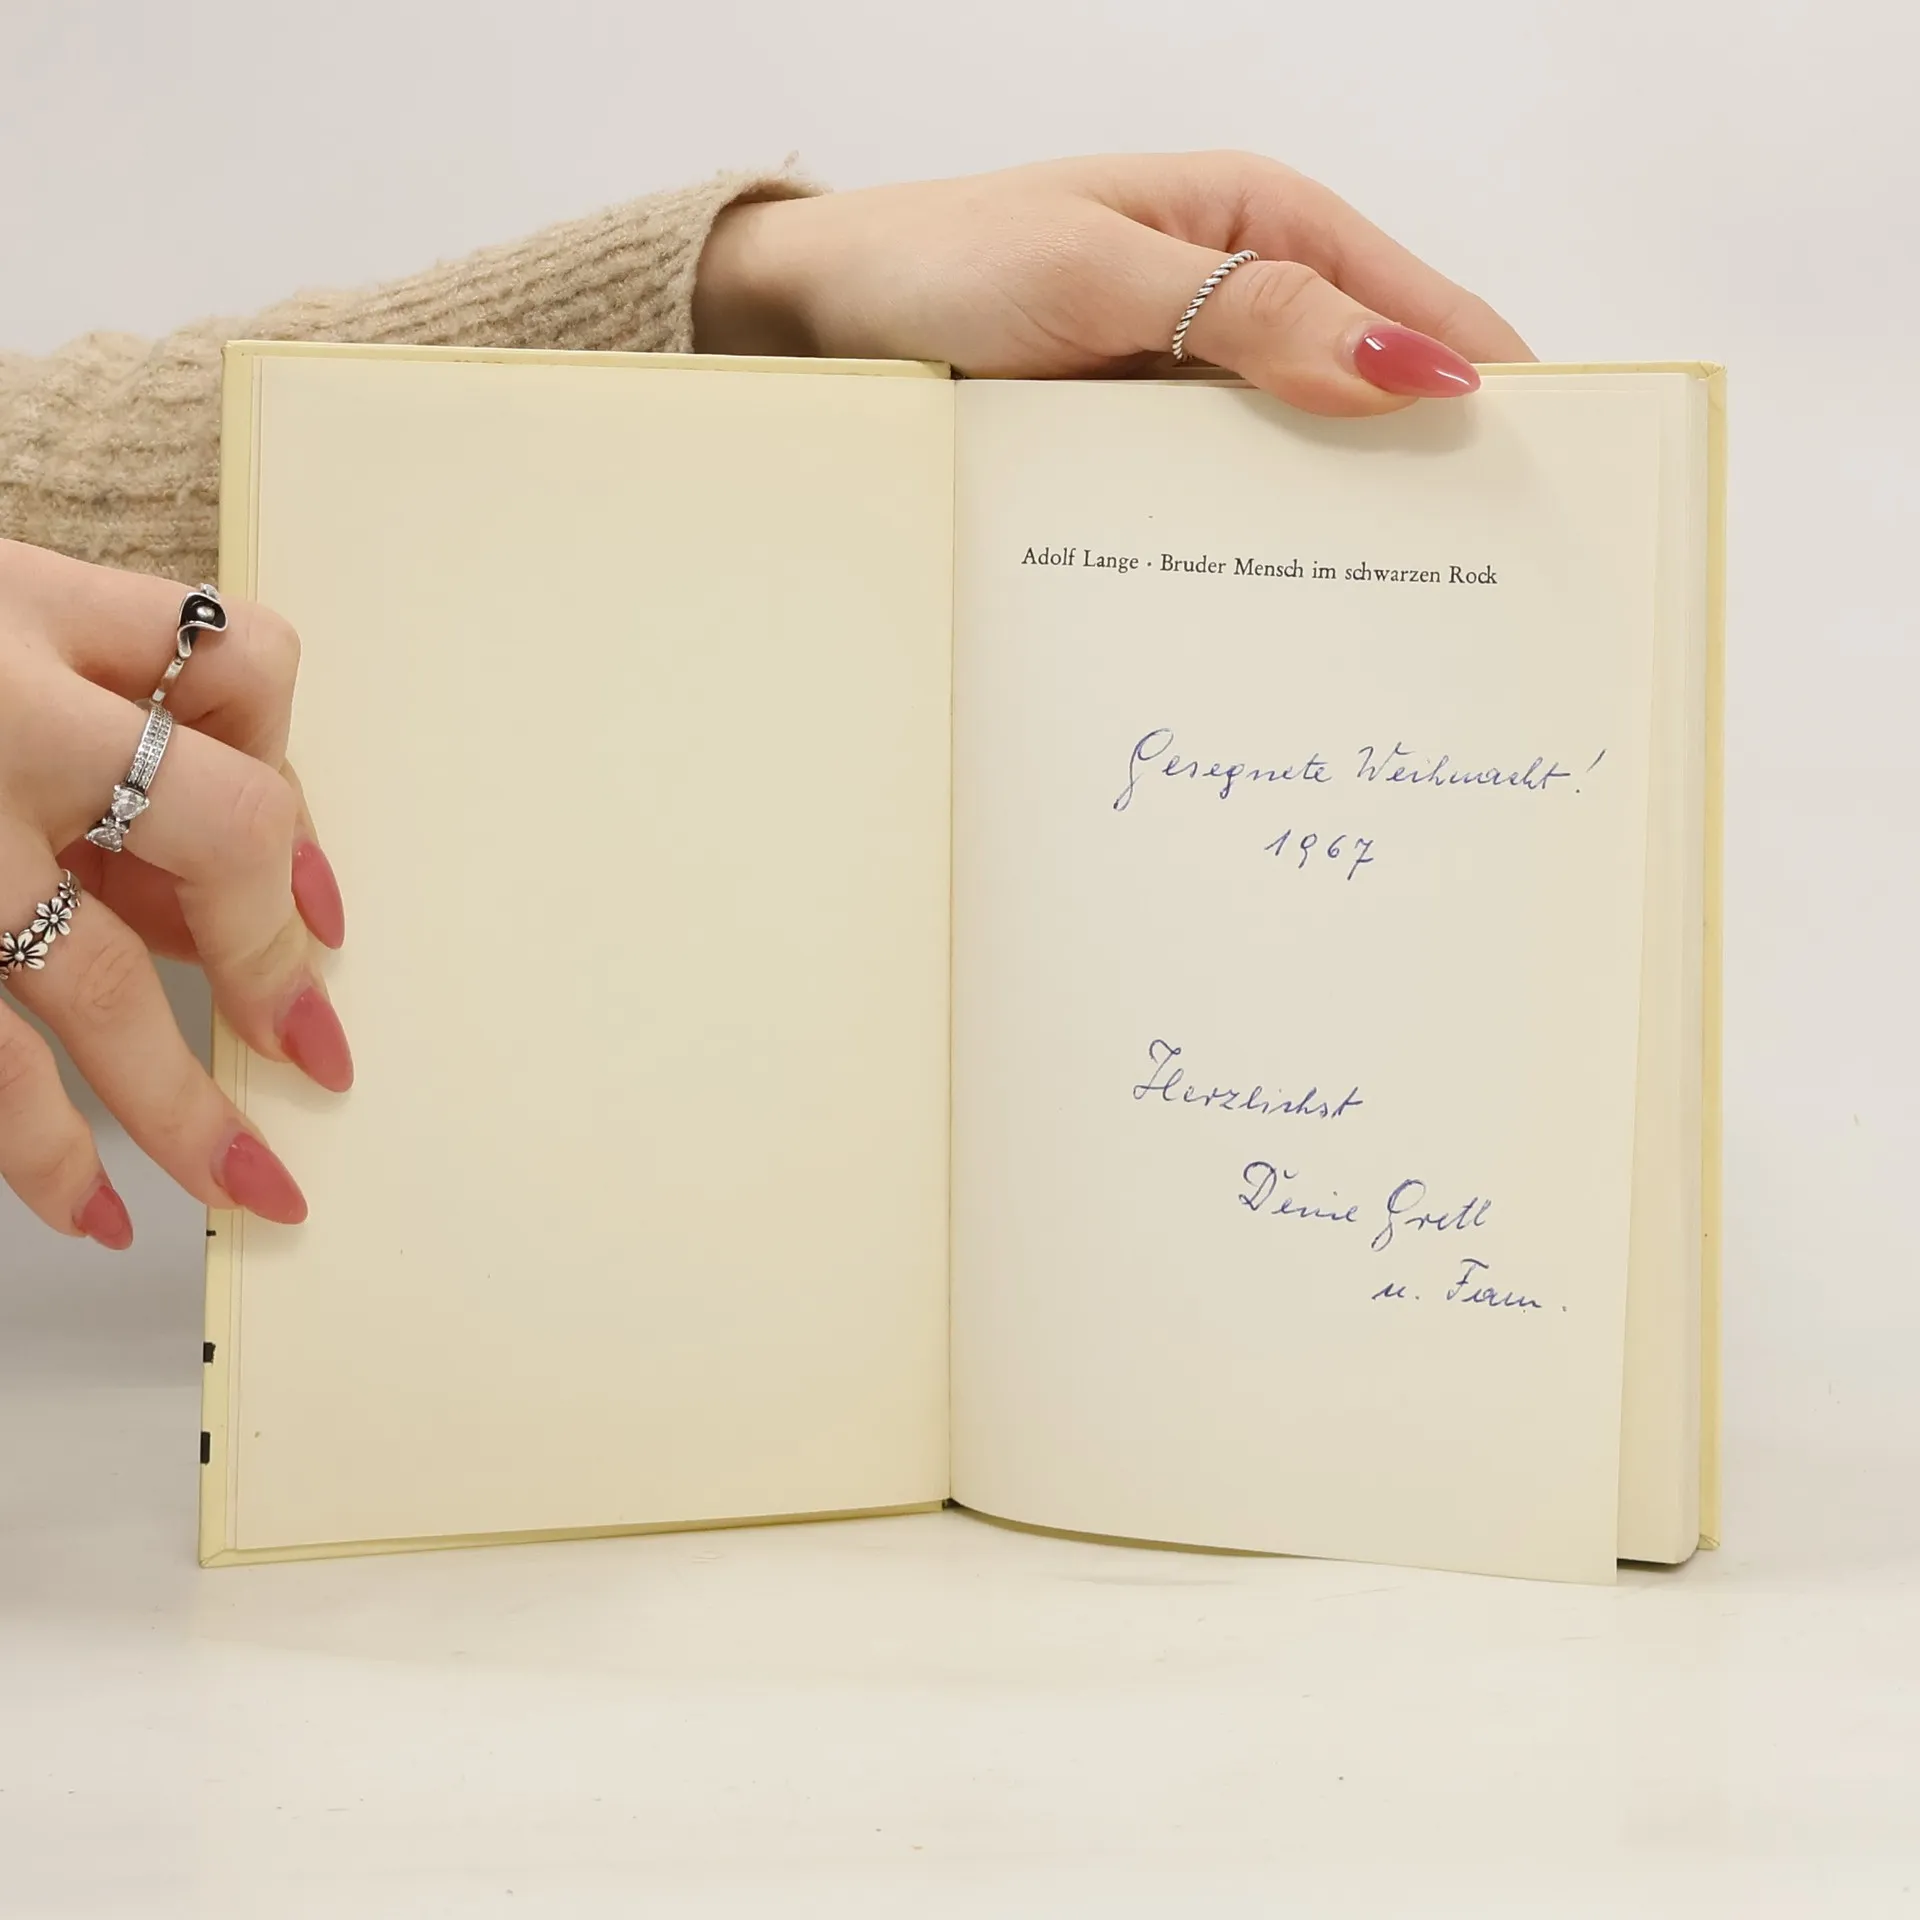 Adolf Lange · Bruder Mensch im schwarzen Rock
Gesegnete Weihnacht!
1967
Herzlichst
Deine Gretl
u. Fam.